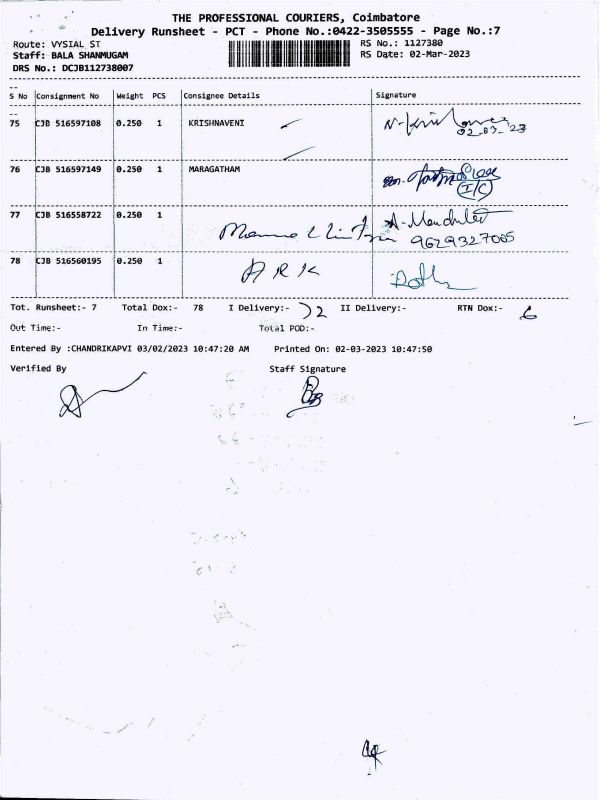 THE PROFESSIONAL COURIERS, Coimbatore
Delivery Runsheet - PCT - Phone No.:0422-3505555 - Page No.:7
Route: VYSIAL ST RS No.: 1127380
Staff: BALA SHANMUGAM RS Date: 02-Mar-2023
DRS No.: DCJB112738007
S No Consignment No Weight PCS Consignee Details Signature
75 CJB 516597108 0.250 1 KRISHNAVENI
02.03.23
76 CJB 516597149 0.250 1 MARAGATHAM
(I/C)
77 CJB 516558722 0.250 1
9629327005
78 CJB 516560195 0.250 1 ARK
Tot. Runsheet:- 7 Total Dox:- 78 I Delivery:- 72 II Delivery:- RTN Dox:- 6
Out Time:- In Time:- Total POD:-
Entered By :CHANDRIKAPVI 03/02/2023 10:47:20 AM Printed On: 02-03-2023 10:47:50
Verified By Staff Signature